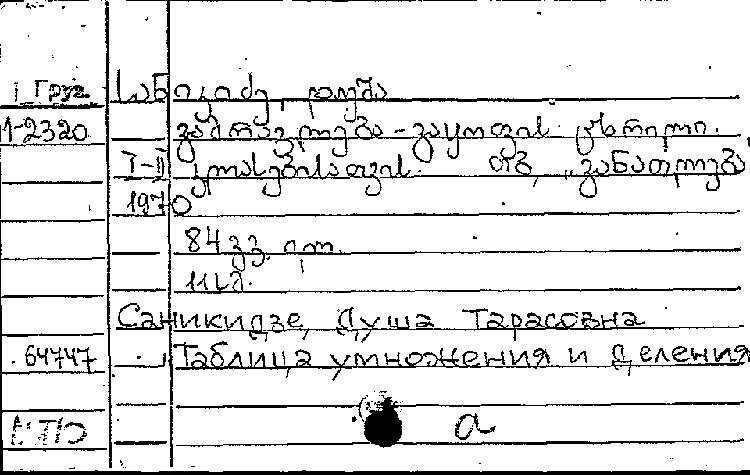 Груз. სანიკიძე, დუშა
1-2320 გამრავლება-გაყოფის ცხრილი.
I-II კლასებისათვის. თბ, „განათლება",
1970
84 გვ. ილ.
11 კ.
Саникидзе, Душа Тарасовна
64747 Таблица умножения и деления
a